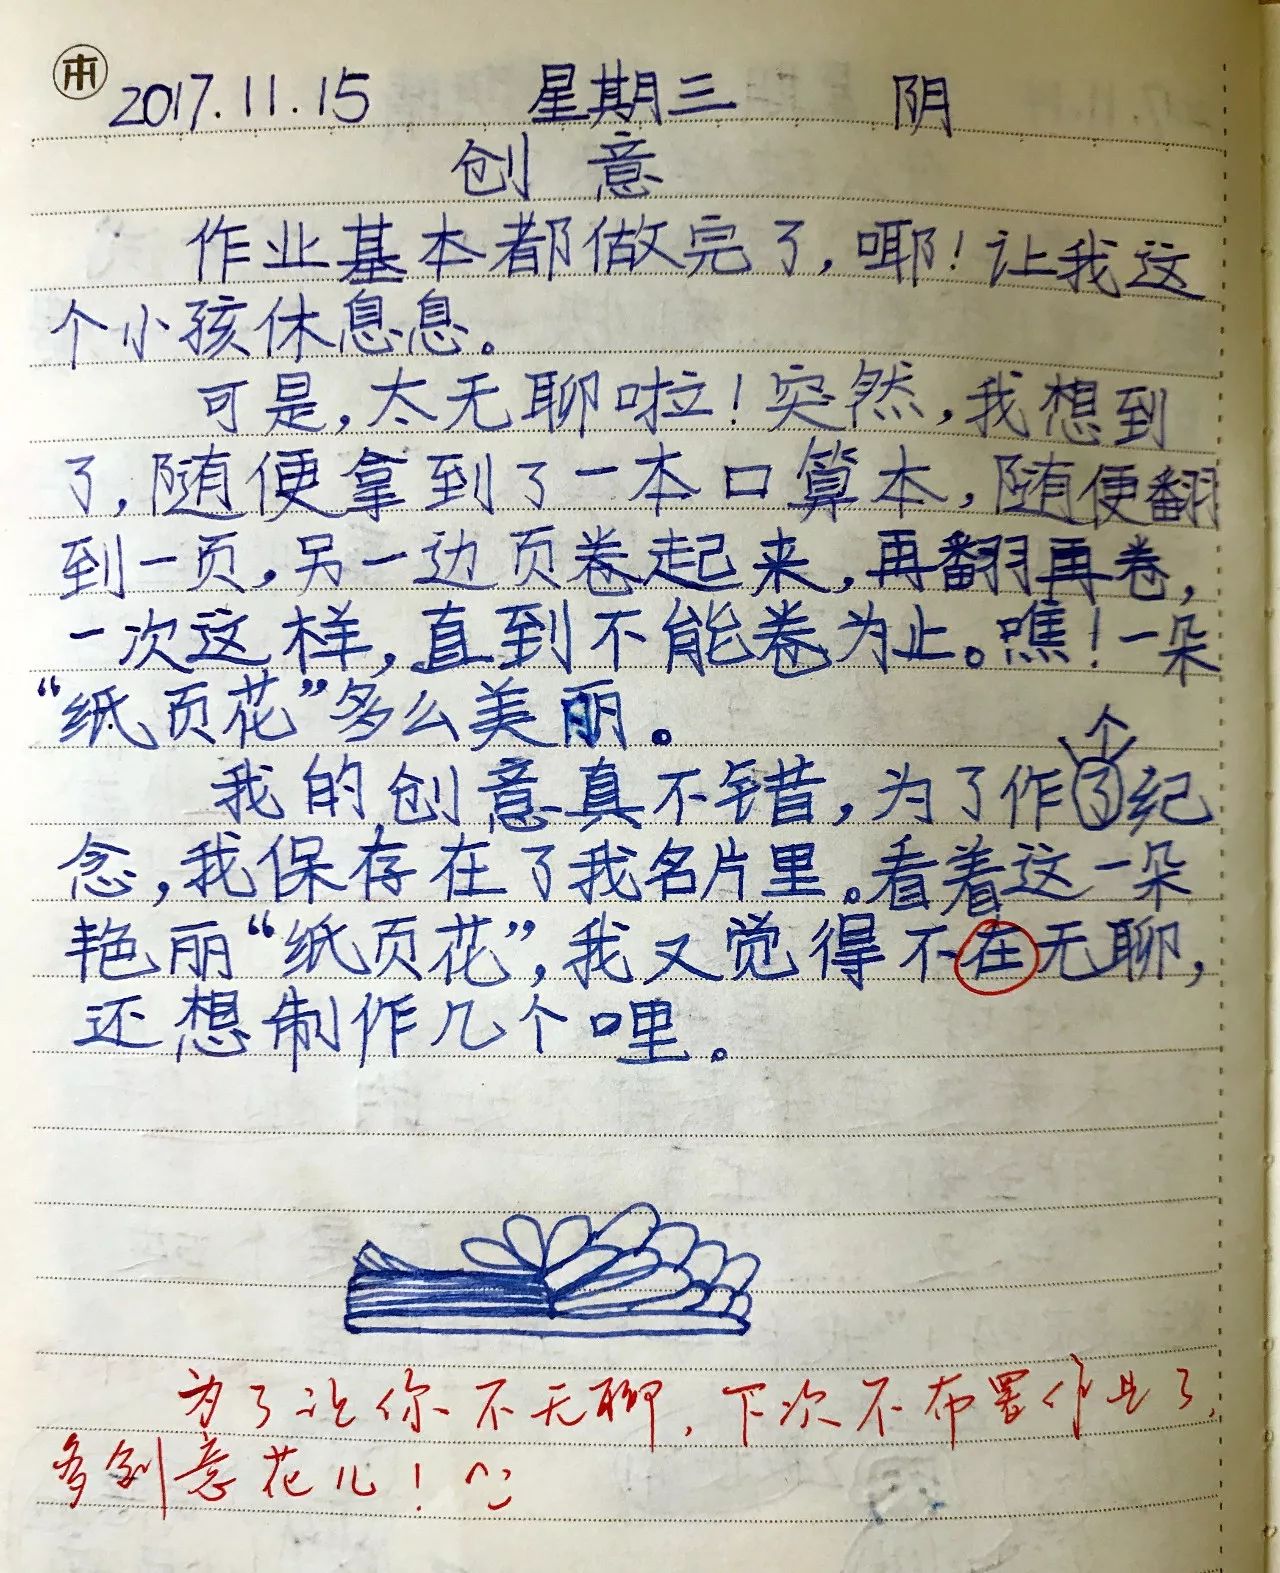 2017.11.15 星期三 阴
创 意
作业基本都做完了，耶！让我这
个小孩休息息。
可是，太无聊啦！突然，我想到
了，随便拿到了一本口算本，随便翻
到一页，另一边页卷起来，再翻再卷，
一次这样，直到不能卷为止。瞧！一朵
“纸页花”多么美丽。
个
我的创意真不错，为了作了纪
念，我保存在了我名片里。看着这一朵
艳丽“纸页花”，我又觉得不在无聊，
还想制作几个哩。
为了让你不无聊，下次不布置作业了，
多创意花儿！